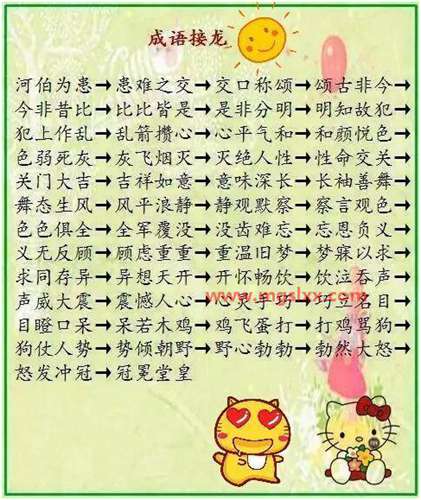 成语接龙
河伯为患→患难之交→交口称颂→颂古非今→
今非昔比→比比皆是→是非分明→明知故犯→
犯上作乱→乱箭攒心→心平气和→和颜悦色→
色弱死灰→灰飞烟灭→灭绝人性→性命交关→
关门大吉→吉祥如意→意味深长→长袖善舞→
舞态生风→风平浪静→静观默察→察言观色→
色色俱全→全军覆没→没齿难忘→忘恩负义→
义无反顾→顾虑重重→重温旧梦→梦寐以求→
求同存异→异想天开→开怀畅饮→饮泣吞声→
声威大震→震憾人心→心灵手巧→巧立名目→
www.mgslxx.com
目瞪口呆→呆若木鸡→鸡飞蛋打→打鸡骂狗→
狗仗人势→势倾朝野→野心勃勃→勃然大怒→
怒发冲冠→冠冕堂皇